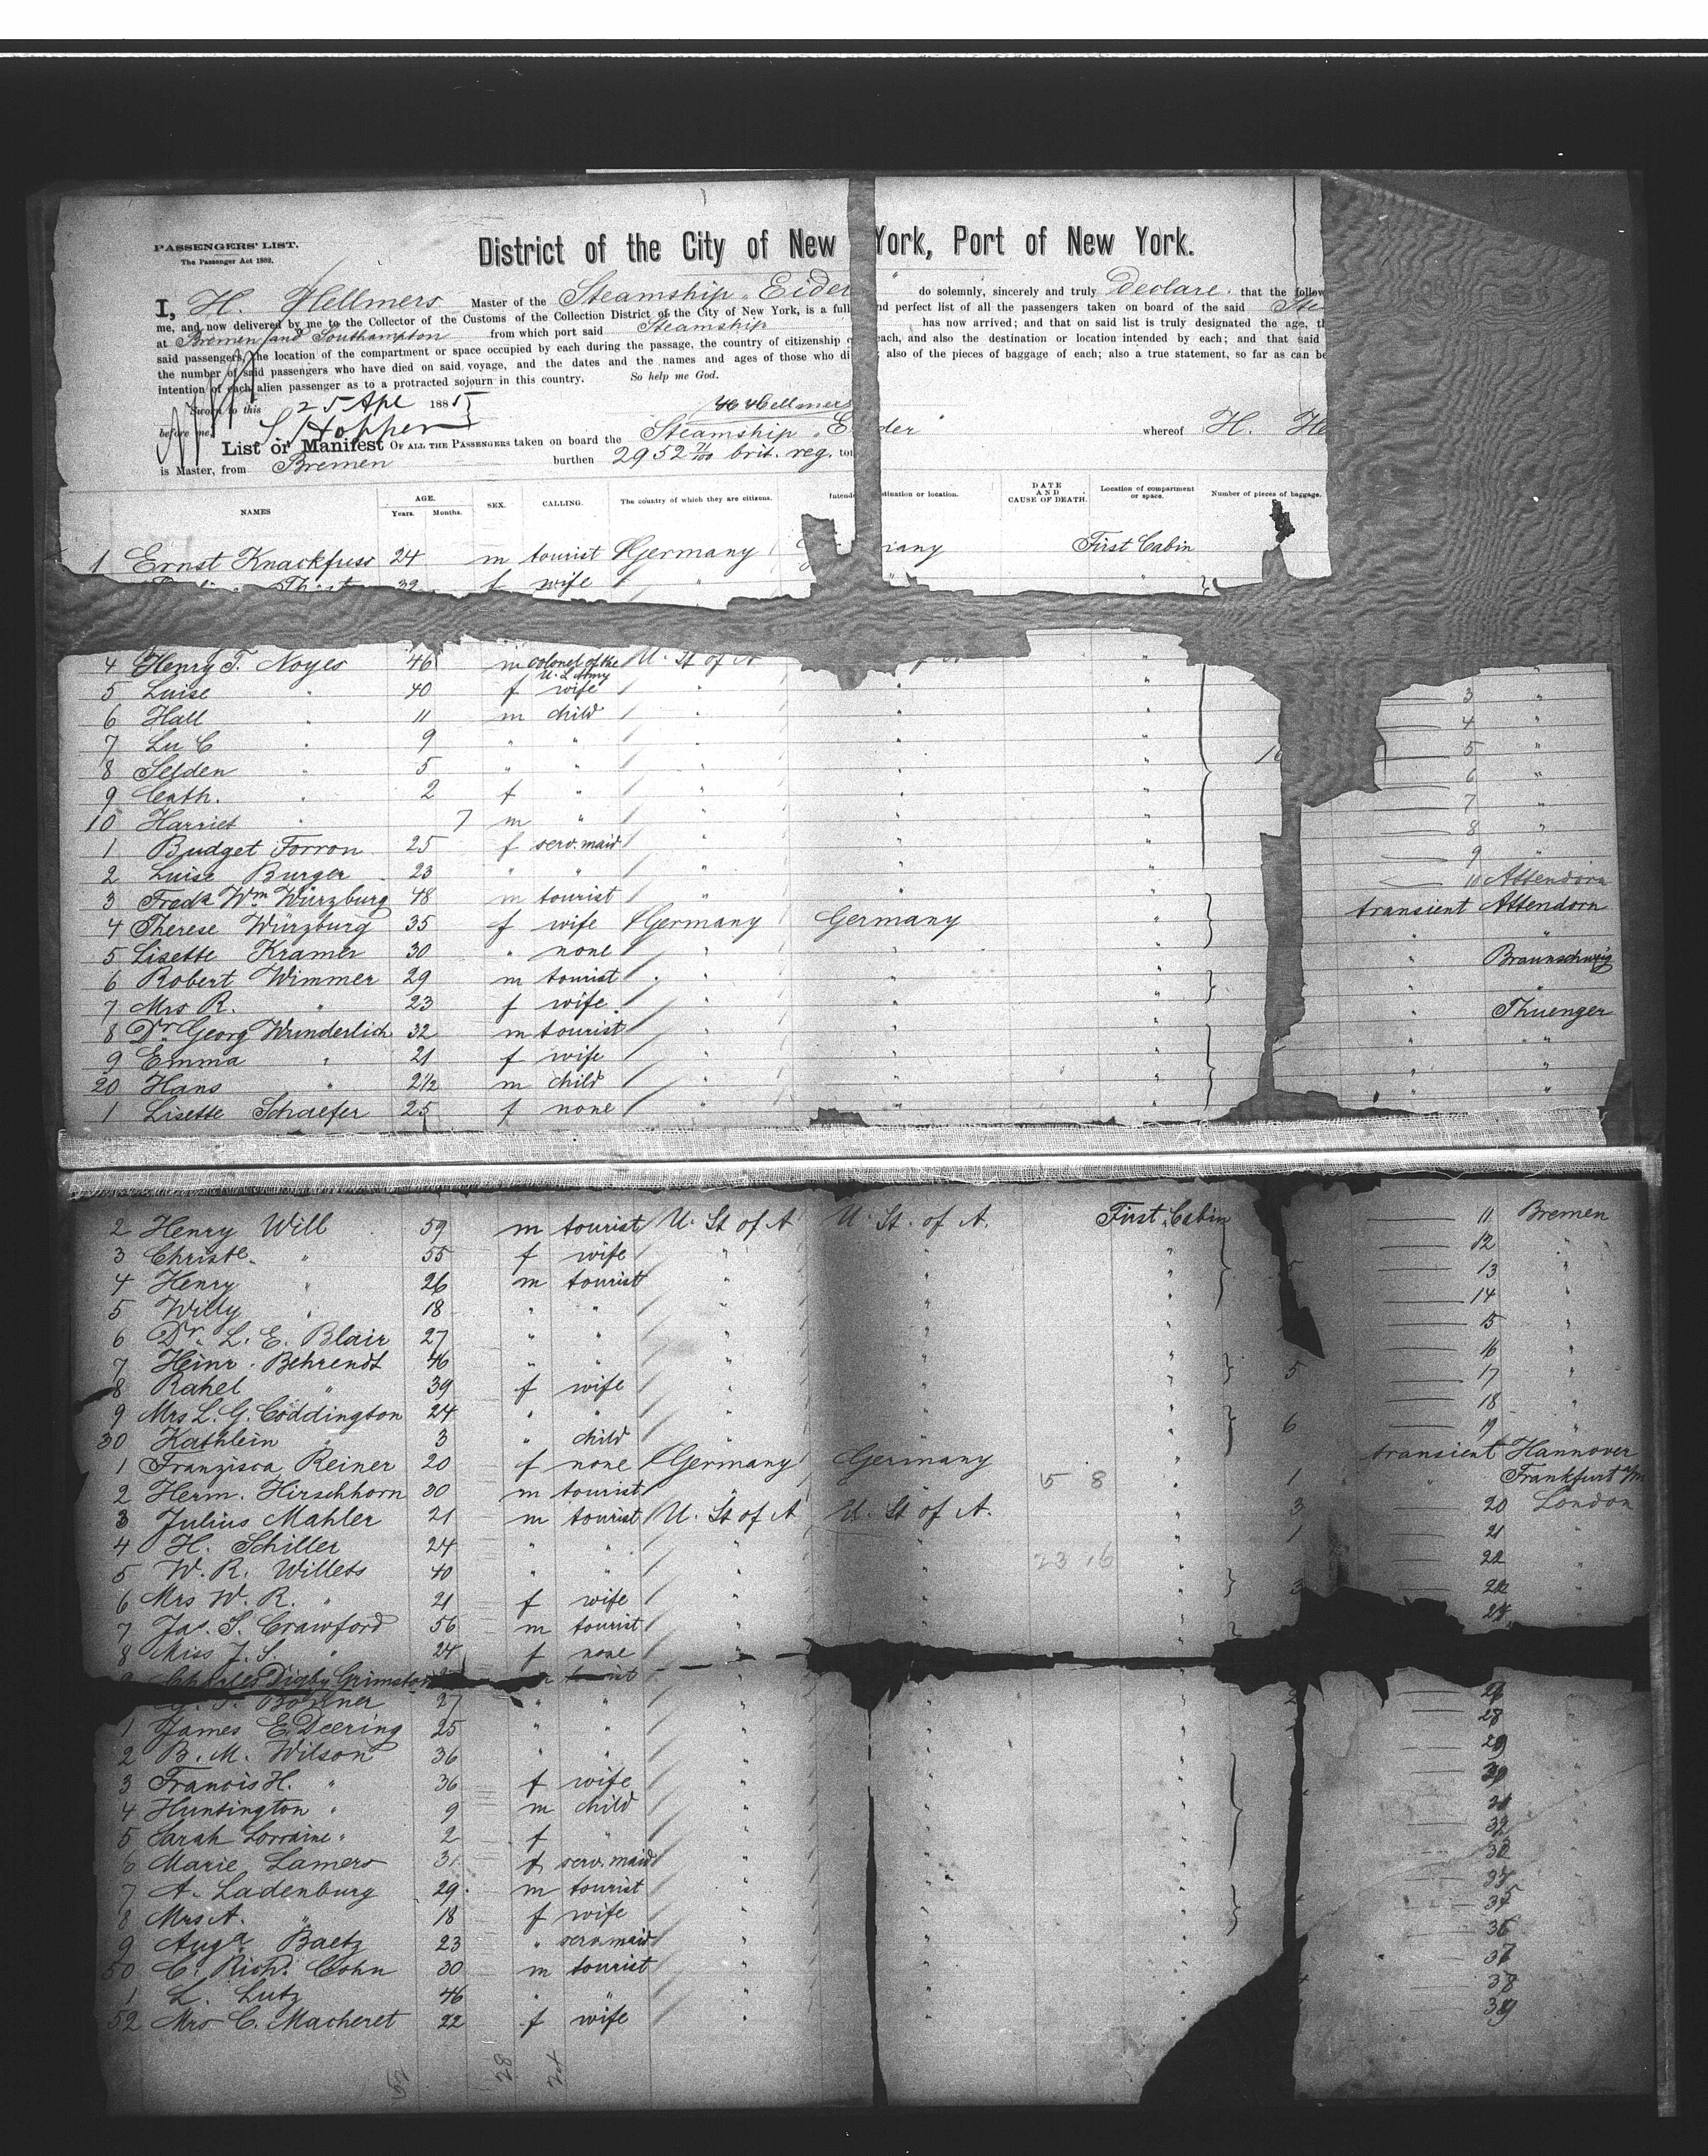 PASSENGERS' LIST.
The Passenger Act 1882.
District of the City of New York, Port of New York.
I, H. Hellmers Master of the Steamship "Eider" do solemnly, sincerely and truly Declare that the follow
me, and now delivered by me to the Collector of the Customs of the Collection District of the City of New York, is a full nd perfect list of all the passengers taken on board of the said Ste
at Bremen and Southampton from which port said Steamship has now arrived; and that on said list is truly designated the age, t
said passengers, the location of the compartment or space occupied by each during the passage, the country of citizenship each, and also the destination or location intended by each; and that said
the number of said passengers who have died on said voyage, and the dates and the names and ages of those who di ; also of the pieces of baggage of each; also a true statement, so far as can be
intention of each alien passenger as to a protracted sojourn in this country. So help me God.
Sworn to this 25 Apl 1885 H Hellmers
before me
List or Manifest OF ALL THE PASSENGERS taken on board the Steamship "Eider" whereof H. He
is Master, from Bremen burthen 2952 71/100 brit. reg. ton
NAMES AGE. Years. Months. SEX. CALLING. The country of which they are citizens. Intende stination or location. DATE AND CAUSE OF DEATH. Location of compartment or space. Number of pieces of baggage.
1 Ernst Knackfuss 24 m tourist Germany many First Cabin
32 f wife "
4 Henry T. Noyes 46 m colonel of the U. S. Army U. St of A "
5 Luise " 40 f wife " " " 3 "
6 Hall " 11 m child " " " 4 "
7 Lu C " 9 " " " " " 5 "
8 Selden " 5 " " " " " 6 "
9 Cath. " 2 f " " " " 7 "
10 Harriet " 7 m " " " " 8 "
1 Budget Forron 25 f serv. maid " " " 9 "
2 Luise Burger 23 " " " " " 10 Attendorn
3 Fredk Wm Würzburg 48 m tourist " " " transient Attendorn
4 Therese Würzburg 35 f wife Germany Germany " " "
5 Lisette Kramer 30 " none " " " " Braunschweig
6 Robert Wimmer 29 m tourist " " " " "
7 Mrs R. " 23 f wife " " " " Thuenger
8 Dr Georg Wunderlich 32 m tourist " " " " "
9 Emma " 21 f wife " " " " "
20 Hans " 2 1/2 m child " " " " "
1 Lisette Schaefer 25 f none " " "
2 Henry Will 59 m tourist U. St of A U. St. of A. First Cabin 11 Bremen
3 Christe. " 55 f wife " " " 12 "
4 Henry " 26 m tourist " " " 13 "
5 Willy " 18 " " " " " 14 "
6 Dr. L. E. Blair 27 " " " " " 15 "
7 Heinr. Behrendt 46 " " " " " 5 16 "
8 Rahel " 39 f wife " " " 17 "
9 Mrs L. G. Coddington 24 " " " " " 6 18 "
30 Kathlein " 3 " child " " " 19 "
1 Franzisca Reiner 20 f none Germany Germany " 1 transient Hannover
2 Herm. Hirschhorn 30 m tourist " " 5 8 " " Frankfurt a/m
3 Julius Mahler 21 m tourist U. St of A U. St of A. " 3 20 London
4 H. Schiller 24 " " " " " 1 21 "
5 W. R. Willets 40 " " " " 23 16 " 3 22 "
6 Mrs W. R. " 21 f wife " " "
7 Jas. S. Crawford 56 m tourist " " "
8 Miss J. S. " 24 f none " "
Charles Digby Grimston tourist " "
Bonner 27 " " " " " 2
1 James E. Deering 25 " " " " " 28
2 B. M. Wilson 36 " " " " " 29
3 Francis H. " 36 f wife " " "
4 Huntington " 9 m child " " "
5 Sarah Lorraine " 2 f " " " " 32
6 Marie Lamers 31 f serv. maid " " "
7 A. Ladenburg 29 m tourist " " "
8 Mrs A. " 18 f wife " " " 35
9 Auga Baetz 23 " serv. maid " " " 36
50 C. Richd. Cohn 30 m tourist " " " 37
1 L. Lutz 46 " " " " " 38
52 Mrs C. Macheret 22 f wife " " " 39
52 28 24